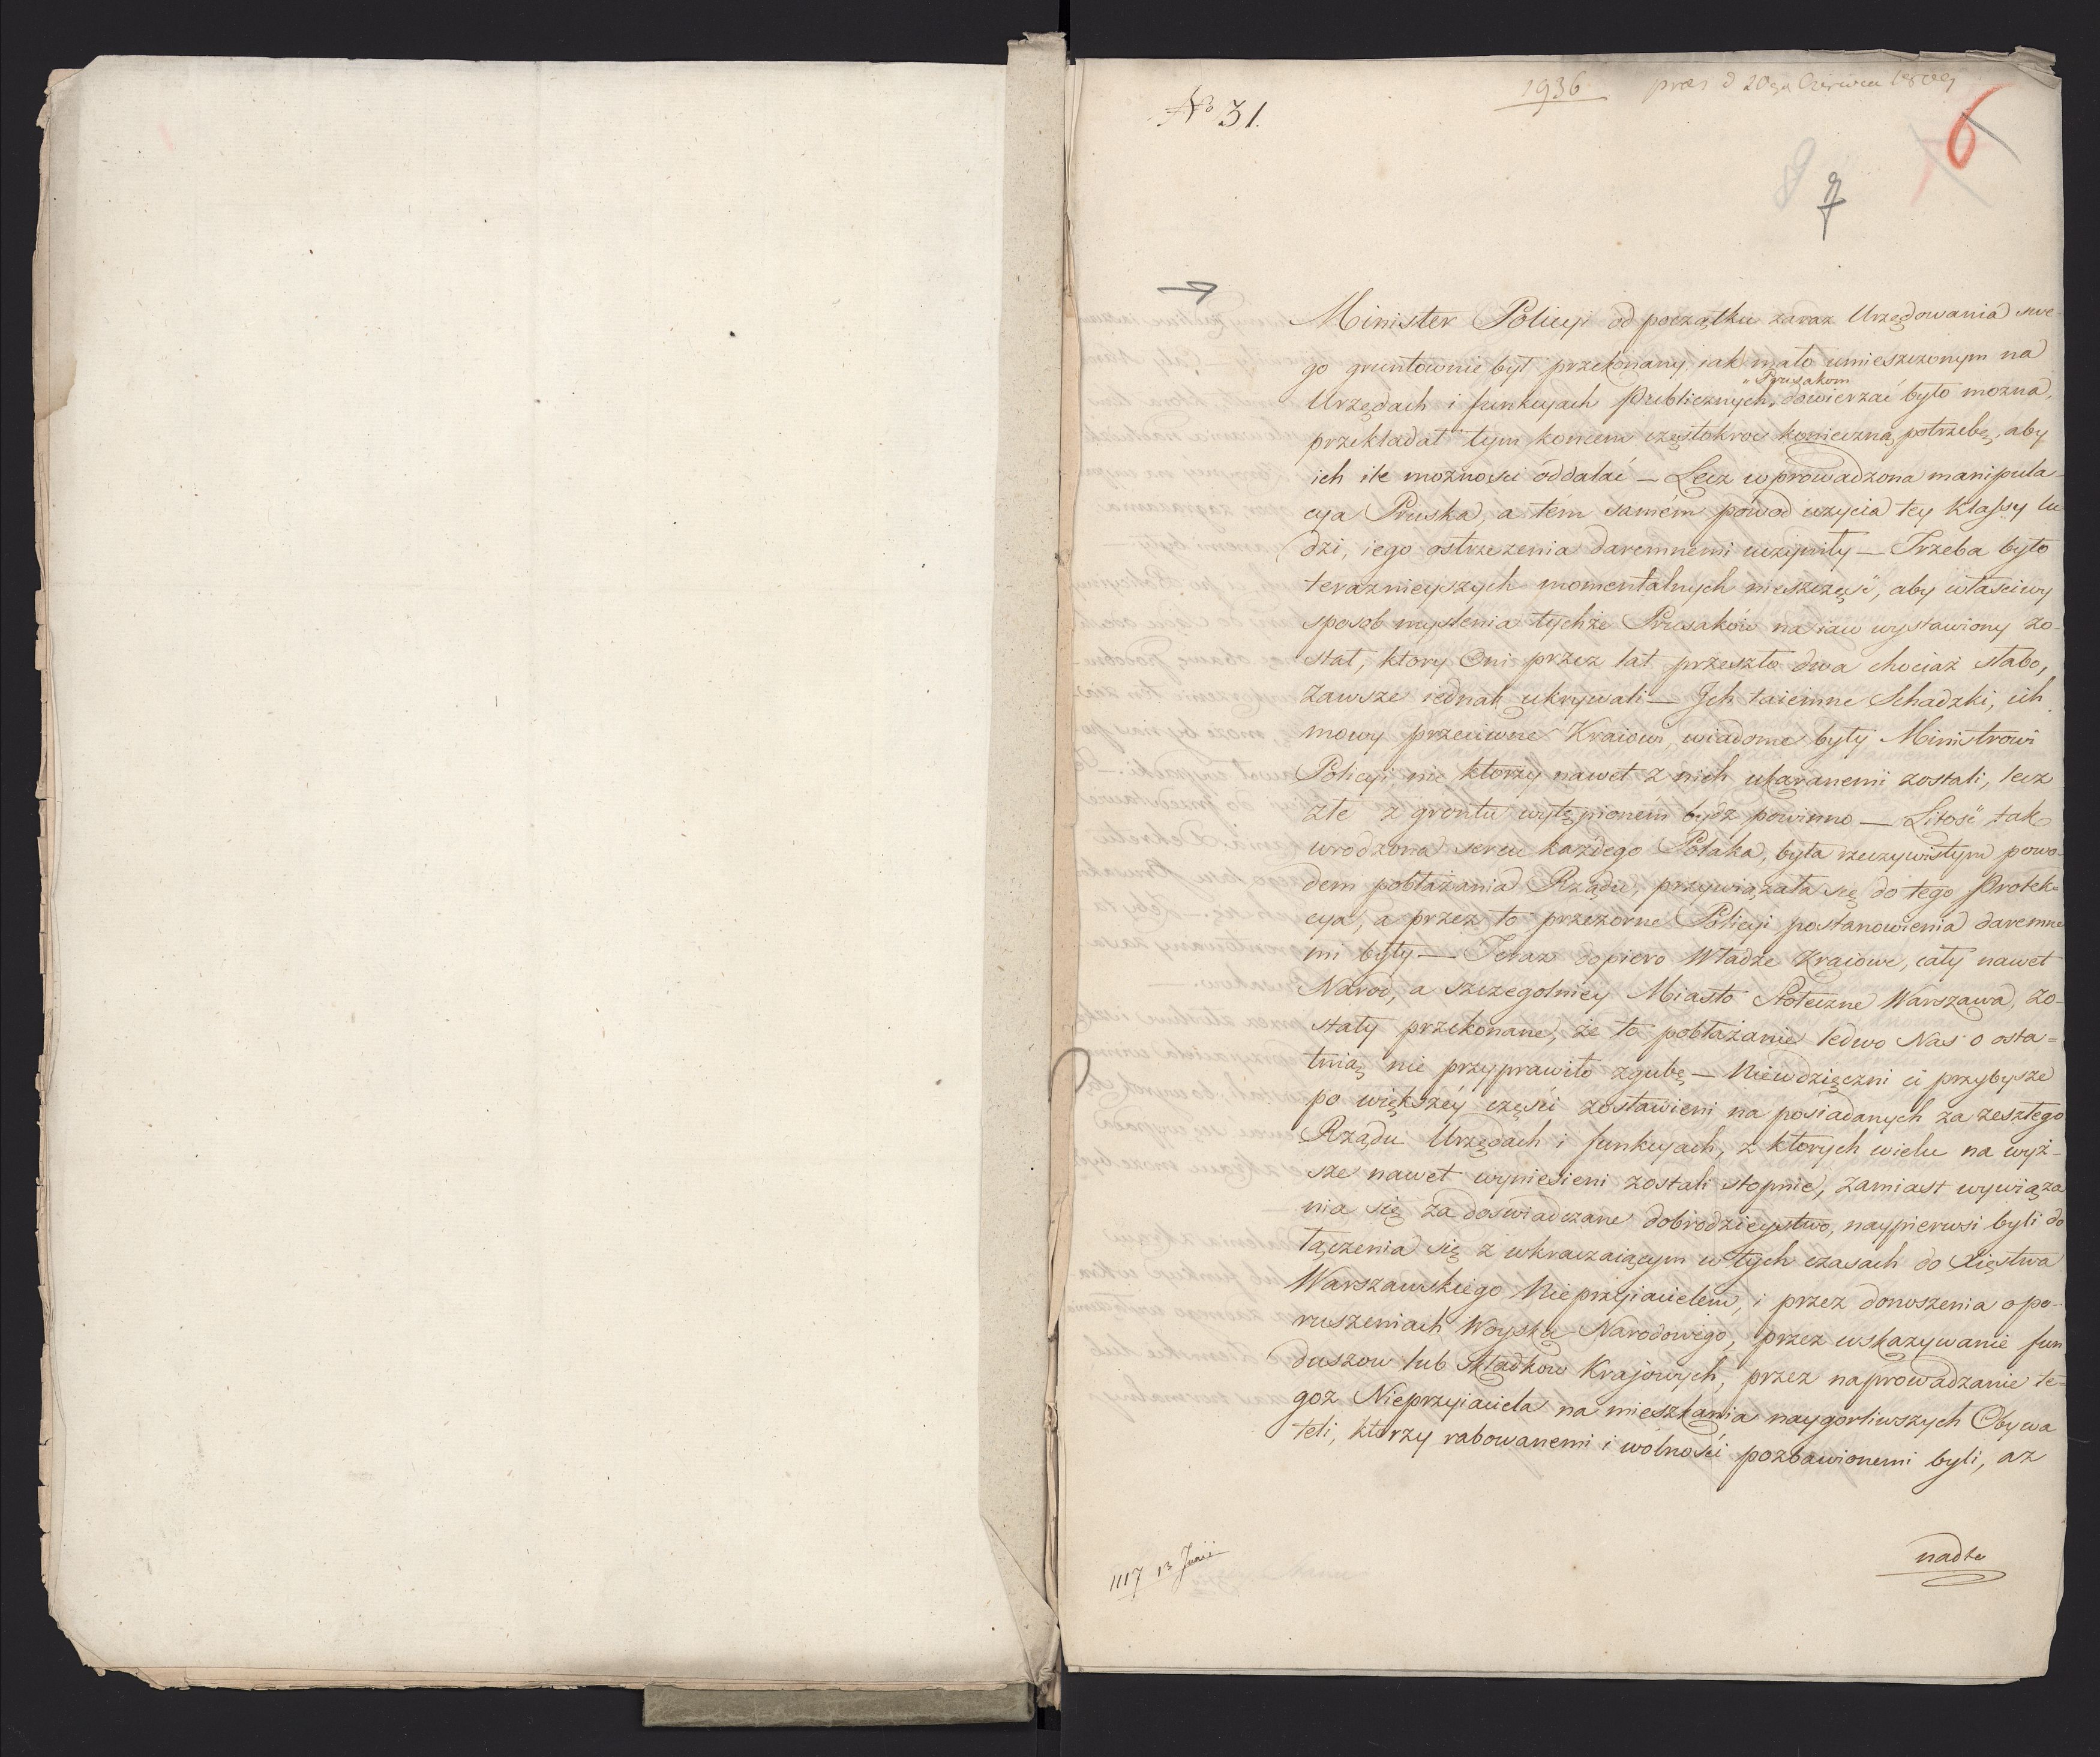 1936 praes d 20go Czerwca 1809
No 31.
6
8 7
Minister Policyi od początku zaraz Urzędowania swe-
go gruntownie był przekonany, iak mało umieszczonym na
"Prusakom
Urzędach i funkcyach Publicznych, dowierzać było można,
przekładał tym koncem częstokroc konieczną potrzebę, aby
ich ile możności oddalać — Lecz wprowadzona manipula-
cya Pruska, a tém samém powod użycia tey klassy lu
dzi, iego ostrzeżenia daremnemi uczyniły — Trzeba było
teraznieyszych momentalnych nieszczęść, aby właściwy
sposob myslenia tychże Prusaków na iaw wystawiony zo-
stał, ktory Oni przez lat przeszło dwa chociaż słabo,
Zawsze iednak ukrywali — Jch taiemne Schadzki, ich
mowy przeciwne Kraiowi, wiadome były Ministrowi
Policyi, nie ktorzy nawet z nich ukaranemi zostali, lecz
złe z grontu wytępionem bydź powinno — Litość tak
wrodzona sercu każdego Polaka, była rzeczywistym powo-
dem pobłażania Rządu, przywiązała się do tego Protek-
cya, a przez to przezorne Policyi postanowienia daremne
mi były — Teraz dopiero Władze Kraiowe, cały nawet
Narod, a szczegolniey Miasto Stołeczne Warszawa, zo-
stały przekonane, że to pobłażanie ledwo Nas o osta-
tnią nie przyprawiło zgubę — Niewdzięczni ci przybysze
po większéy części zostawieni na posiadanych za zeszłego
Rządu Urzędach i funkcyach, z ktorych wielu na wyż-
sze nawet wyniesieni zostali stopnie, zamiast wywiąza
nia się za doswiadczane dobrodzieystwo, naypierwsi byli do
łączenia się z wkraczaiącym w tych czasach do Xięstwa
Warszawskiego Nieprzyiacielem, i przez donoszenia o po-
ruszeniach Woyska Narodowego, przez wskazywanie fun
duszow lub składkow Krajowych, przez naprowadzanie te-
goż Nieprzyiaciela na mieszkania naygorliwszych Obywa
teli, ktorzy rabowanemi i wolności pozbawionemi byli, az
nadto
1117 13 Junii